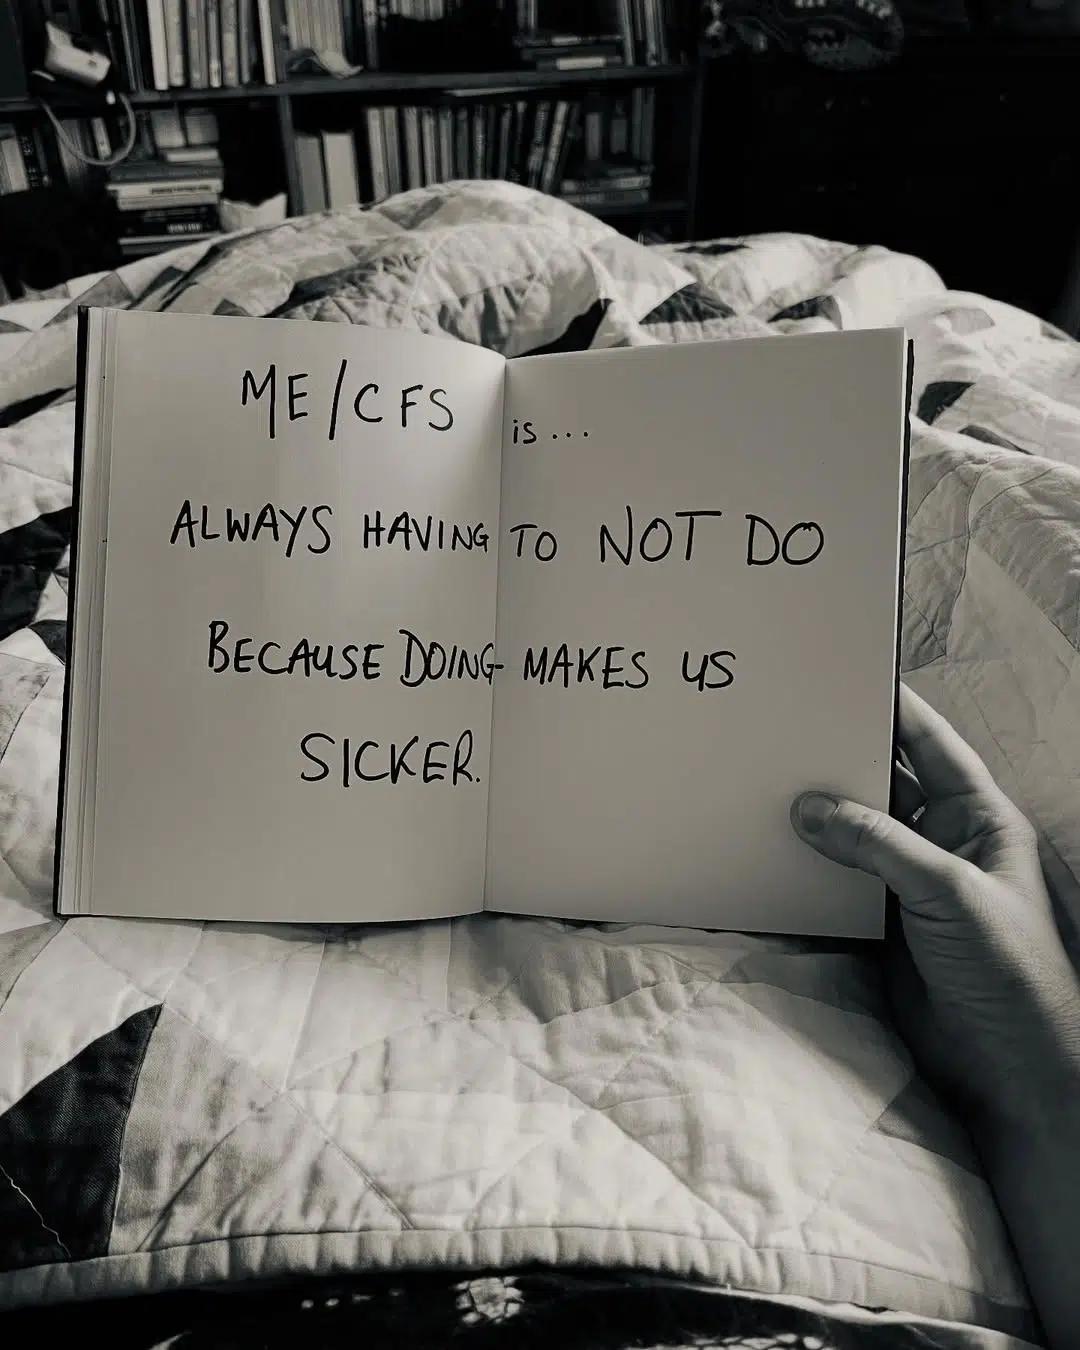 ME/CFS is...
ALWAYS HAVING TO NOT DO
BECAUSE DOING MAKES US
SICKER.